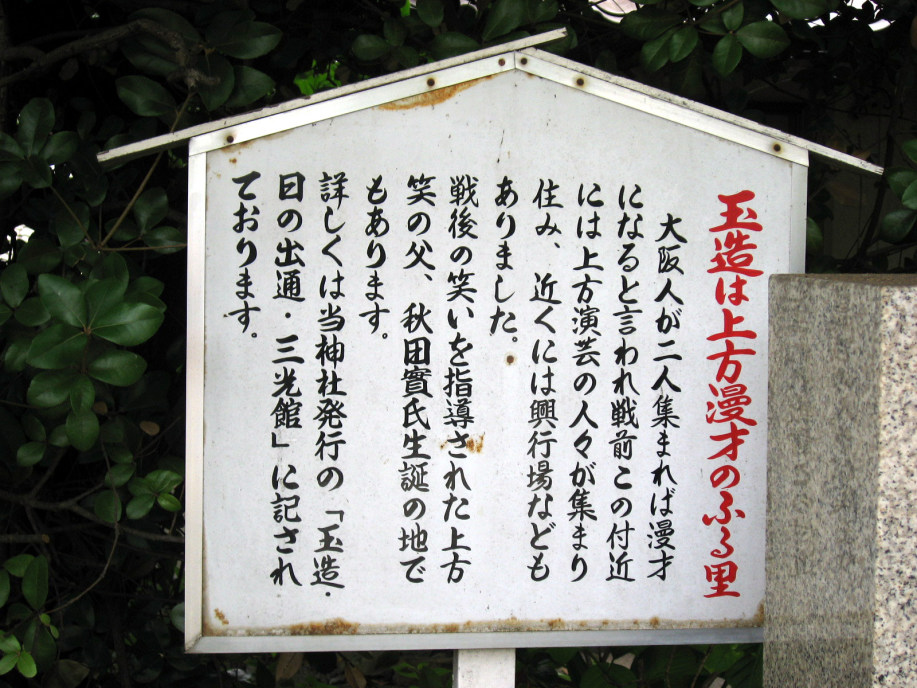 玉造は上方漫才のふる里
大阪人が二人集まれば漫才
になると言われ戦前この付近
には上方演芸の人々が集まり
住み、近くには興行場なども
ありました。
戦後の笑いを指導された上方
笑の父、秋田實氏生誕の地で
もあります。
詳しくは当神社発行の「玉造・
日の出通・三光館」に記され
ております。